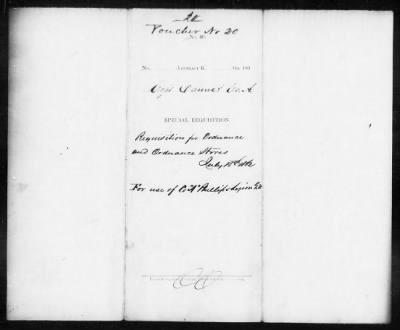 Voucher No 20
No. 40.
No. Abstract K. Qr. 186
Capt Co. A
SPECIAL REQUISITION.
Requisition for Ordnance
and Ordnance Stores
July 18th 1862
For use of Co A Phillips Legion Ga